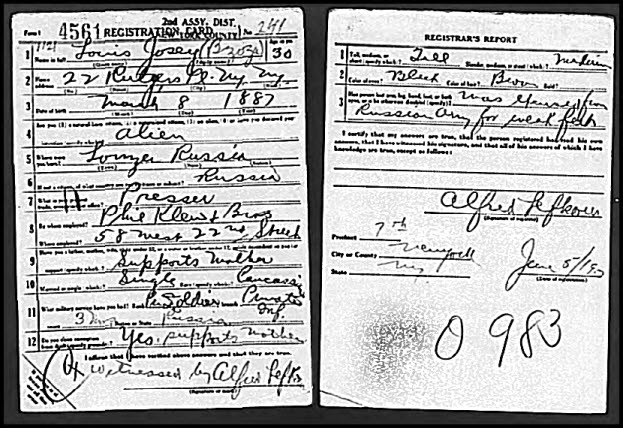 Form 1 4561 REGISTRATION CARD No. 241
2nd ASSY. DIST.
1 Name in full Louis Josey Age in yrs 30
2 Home address 22 Rutgers Pl. N.Y. N.Y.
3 Date of birth March 8 1887
4 Are you (1) a natural-born citizen, (2) a naturalized citizen, (3) an alien, (4) or have you declared your intention (specify which)?
Alien
5 Where were you born? Russia
6 If not a citizen, of what country are you a citizen or subject? Russia
7 Presser
8 By whom employed? Phil Klew & Bros
Where employed? 58 West 22nd Street
9 Supports mother
10 Married or single (which)? Single Race (specify which)?
11 What military service have you had? Rank Private
3 Nation or State Russia
12 Do you claim exemption from draft (specify grounds)? Yes. supports mother
I affirm that I have verified above answers and that they are true.
Witnessed by Alfred
REGISTRAR'S REPORT
1 Tall, medium, or short (specify which)? Tall Slender, medium, or stout (which)? Medium
2 Color of eyes? Black Color of hair? Brown
3 Has person lost arm, leg, hand, foot, or both eyes, or is he otherwise disabled (specify)? Was from
Russian Army for weak
I certify that my answers are true, that the person registered has read his own
answers, that I have witnessed his signature, and that all of his answers of which I have
knowledge are true, except as follows:
Alfred
(Signature of registrar)
Precinct 7th
City or County New York
State N.Y.
June 5/
(Date of registration)
0 983